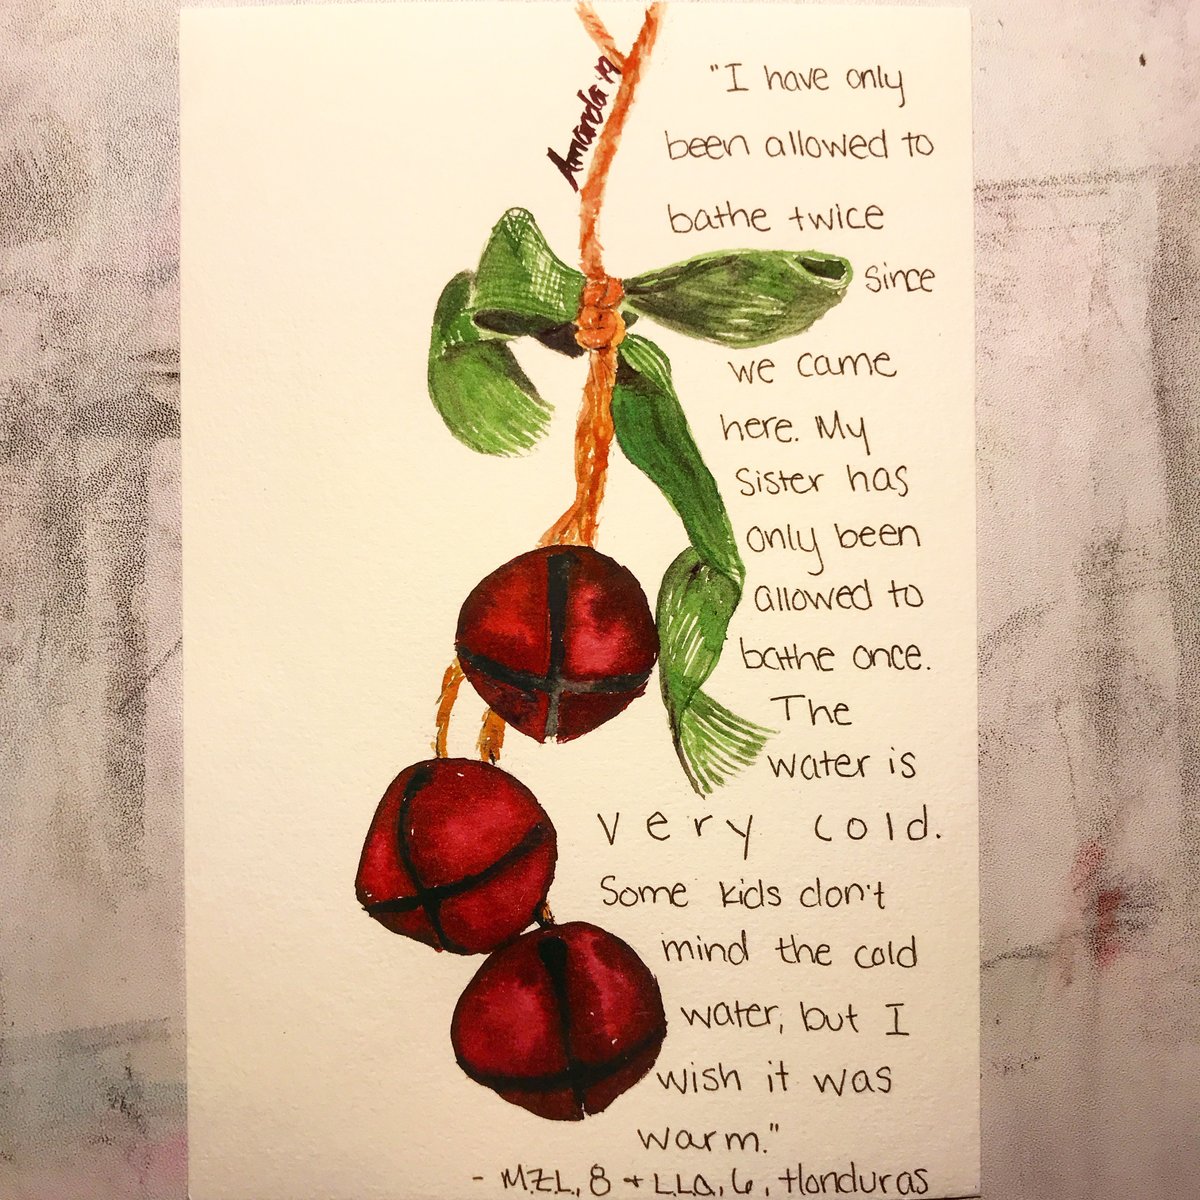 Amanda '19
"I have only
been allowed to
bathe twice
since
we came
here. My
sister has
only been
allowed to
bathe once.
The
water is
very cold.
Some kids don't
mind the cold
water, but I
wish it was
warm."
- M.Z.L., 8 + L.L.A., 6, Honduras